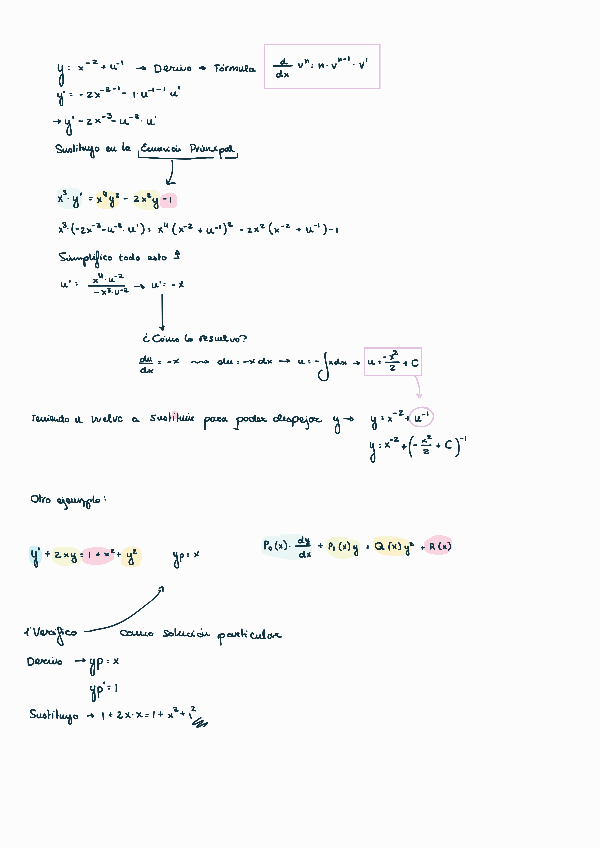 y = x⁻² + u⁻¹ → Derivo → Fórmula d/dx vⁿ = n · vⁿ⁻¹ · v'
y' = -2x⁻²⁻¹ - 1 · u⁻¹⁻¹ u'
→ y' - 2x⁻³ - u⁻² · u'
Sustituyo en la Ecuación Principal
x³ · y' = x⁴y² - 2x²y - 1
x³ · (-2x⁻³ - u⁻² · u') = x⁴ (x⁻² + u⁻¹)² - 2x² (x⁻² + u⁻¹) - 1
Simplifico todo esto ↑
u' = x⁴ · u⁻² / -x³ · u⁻² → u' = -x
¿Cómo lo resuelvo?
du/dx = -x ⟿ du = -x dx → u = -∫xdx → u = -x²/2 + C
Teniendo u vuelvo a sustituir para poder despejar y → y = x⁻² + u⁻¹
y = x⁻² + (-x²/2 + C)⁻¹
Otro ejemplo:
y' + 2xy = 1 + x² + y² yp = x P₀(x) · dy/dx + P₁(x)y + Q(x)y² + R(x)
1º Verifico como solución particular
Derivo → yp = x
yp' = 1
Sustituyo → 1 + 2x · x = 1 + x² + x²